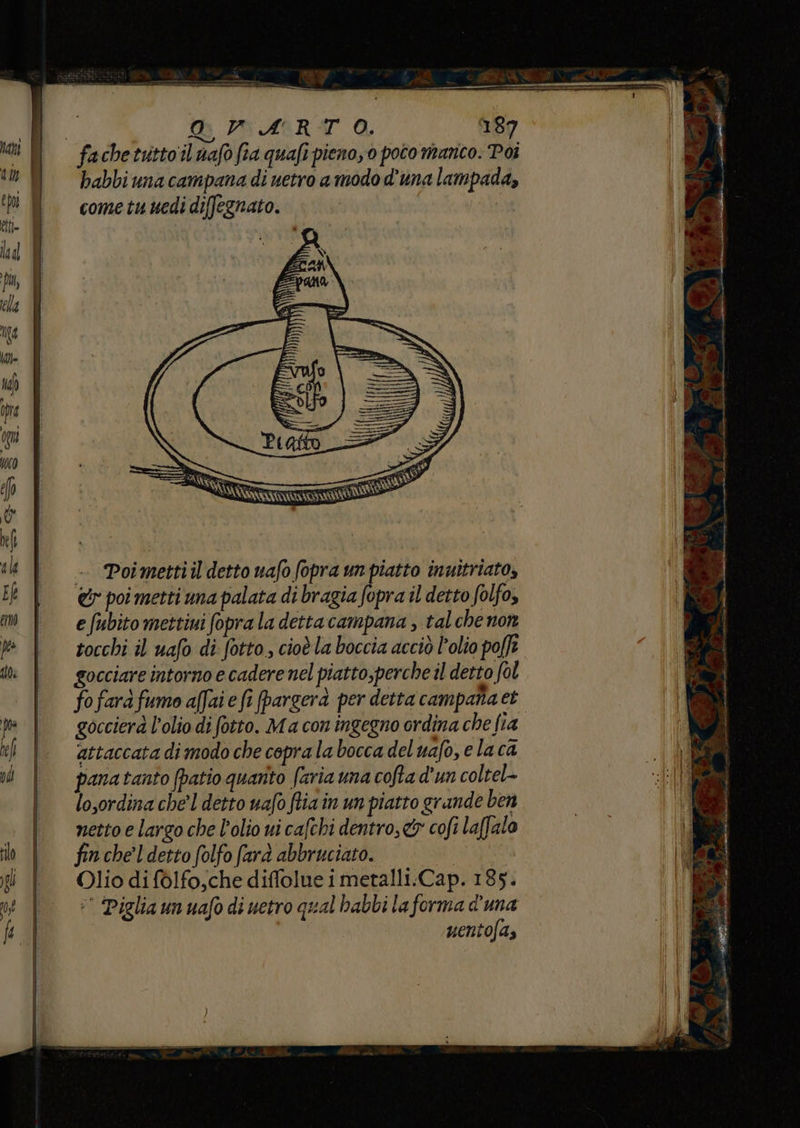 Q V A R T O. 187
fa che tutto il uaſo ſia quaſi pieno, o poco manco. Poi
habbi una campana di uetro a modo d'una lampada,
come tu uedi diſſegnato.
can
pana
vaſo
con
ſolfo
Piatto
Poi metti il detto uaſo ſopra un piatto inuitriato,
& poi metti una palata di bragia ſopra il detto ſolfo,
e ſubito mettiui ſopra la detta campana, tal che non
tocchi il uaſo di ſotto, cioè la boccia acciò l'olio poſſi
gocciare intorno e cadere nel piatto, perche il detto ſol
fo farà fumo aſſai e ſi ſpargerà per detta campana et
goccierà l'olio di ſotto. Ma con ingegno ordina che ſia
attaccata di modo che copra la bocca del uaſo, e la cã
pana tanto ſpatio quanto ſaria una coſta d'un coltel-
lo, ordina che'l detto uaſo ſtia in un piatto grande ben
netto e largo che l'olio ui caſchi dentro, & coſi laſſalo
fin che'l detto ſolfo ſarà abbruciato.
Olio di ſolfo, che diſſolue i metalli. Cap. 185.
Piglia un uaſo di uetro qual habbi la forma d'una
uentoſa,